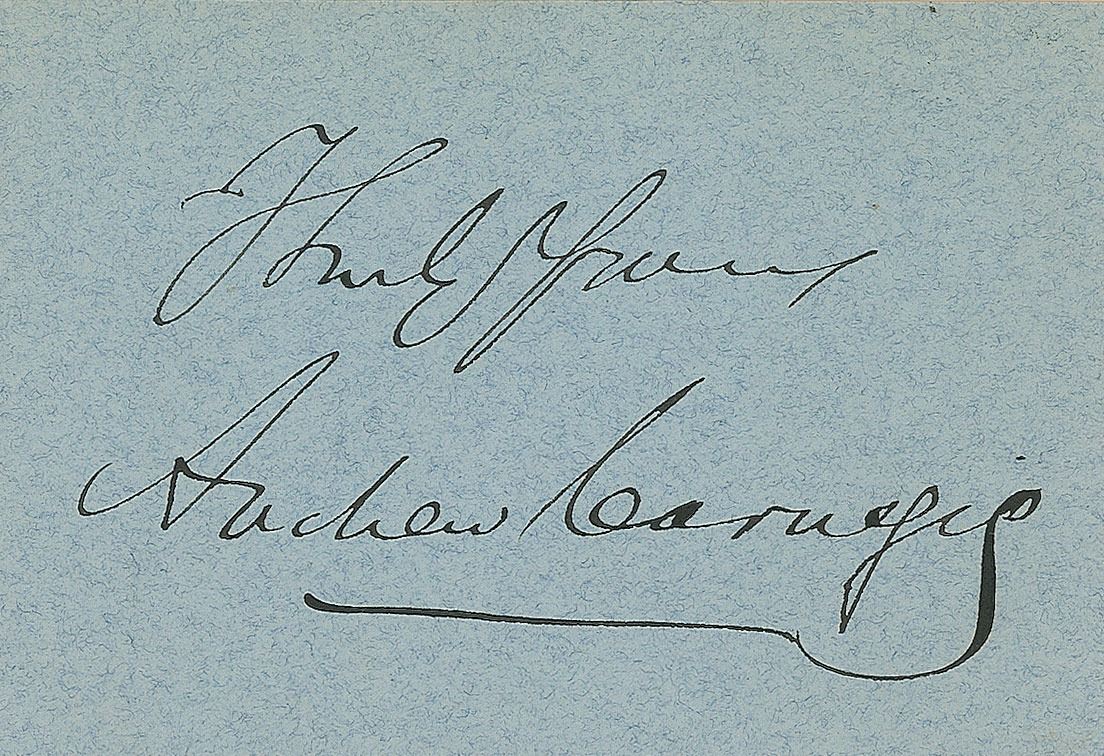 Truly Yours
Andrew Carnegie